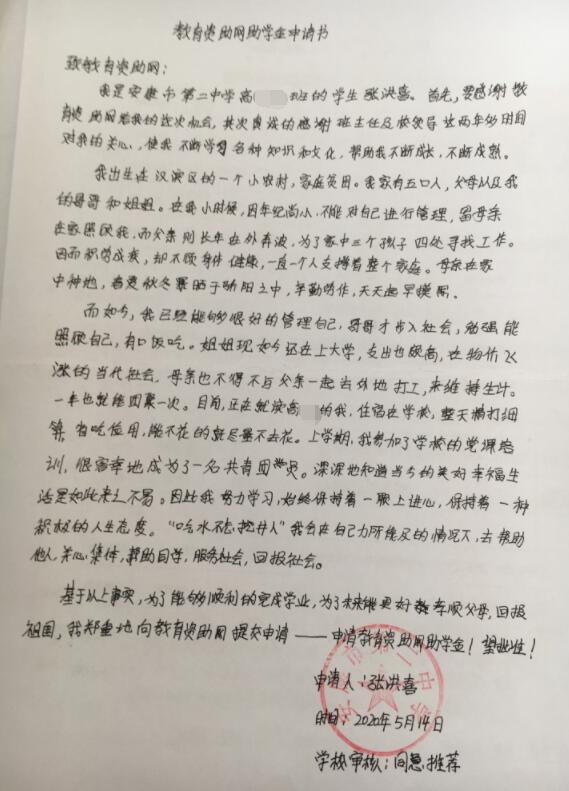 教育资助网助学金申请书
致教育资助网:
我是安康市第二中学高 班的学生张洪喜。首先,要感谢教
育资助网给我的这次机会,其次真诚的感谢班主任及校领导这两年多时间
对我的关心,使我不断学习各种知识和文化,帮助我不断成长,不断成熟。
我出生在汉滨区的一个小农村,家庭贫困。我家有五口人,父母以及我
的哥哥和姐姐。在我小时候,因年纪尚小,不能对自己进行管理,留母亲
在家照顾我,而父亲则长年在外奔波,为了家中三个孩子四处寻找工作。
因而积劳成疾,却不顾身体健康,一直一个人支撑着整个家庭。母亲在家
中种地,春夏秋冬暴晒于骄阳之中,辛勤劳作,天天起早摸黑。
而如今,我已经能够很好的管理自己,哥哥才步入社会,勉强能
照顾自己,有口饭吃。姐姐现如今还在上大学,支出也颇高,在物价飞
涨的当代社会,母亲也不得不与父亲一起去外地打工,来维持生计。
一年也就能团聚一次。目前,正在就读高 的我,住宿在学校,整天精打细
算,省吃俭用,能不花的就尽量不去花。上学期,我参加了学校的党课培
训,很容幸地成为了一名共青团员。深深地知道当今的美好幸福生
活是如此来之不易。因此我努力学习,始终保持着一颗上进心,保持着一种
积极的人生态度。“吃水不忘挖井人”我会在自己力所能及的情况下,去帮助
他人,关心集体,帮助同学,服务社会,回报社会。
基于以上事实,为了能够顺利的完成学业,为了未来能更好孝顺父母,回报
祖国,我郑重地向教育资助网提交申请——申请教育资助网助学金!望批准!
申请人:张洪喜
时间:2020年5月14日
学校审核:同意推荐
安康市第二中学